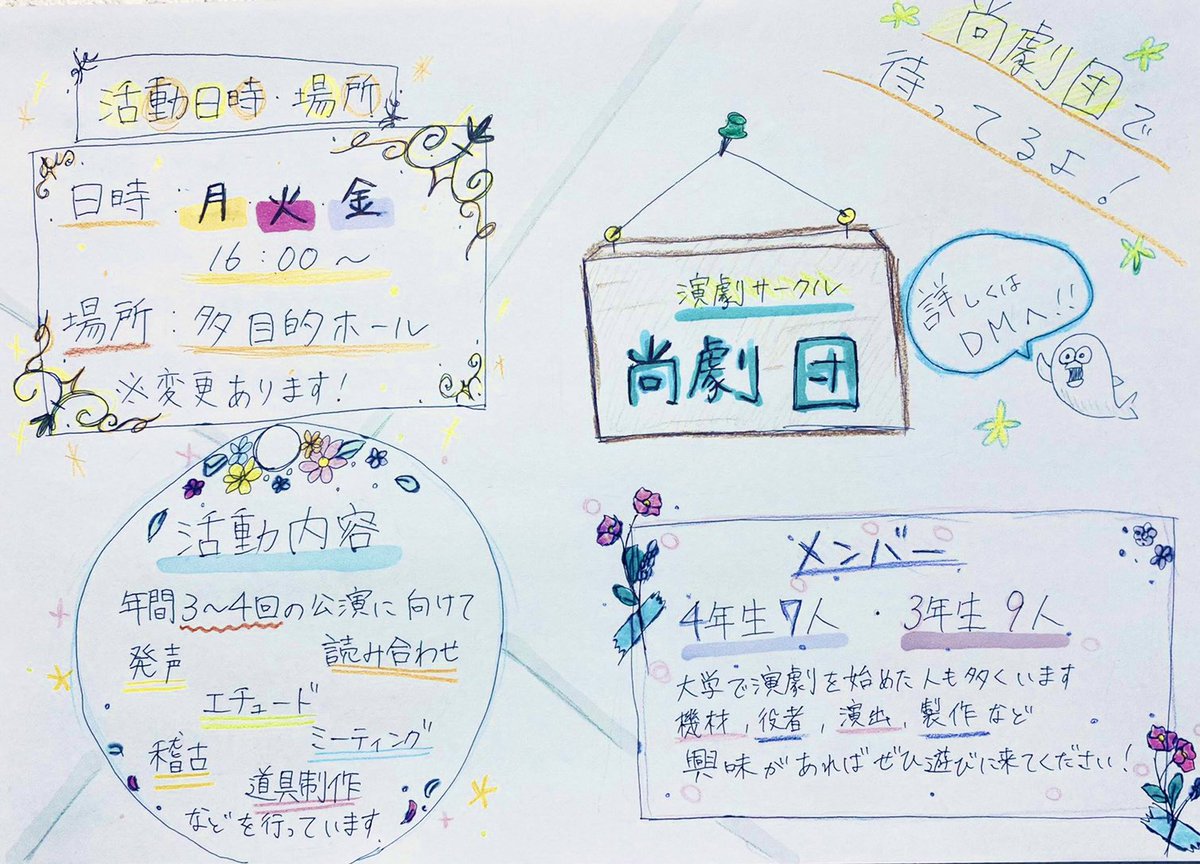 活動日時・場所
日時：月 火 金
16：00～
場所：多目的ホール
※変更あります！
尚劇団で
待ってるよ！
演劇サークル
尚劇団
詳しくは
DMへ!!
活動内容
年間3～4回の公演に向けて
発声 読み合わせ
エチュード
ミーティング
稽古
道具制作
などを行っています.
メンバー
4年生7人 ・ 3年生 9人
大学で演劇を始めた人も多くいます
機材，役者，演出，製作など
興味があればぜひ遊びに来てください！